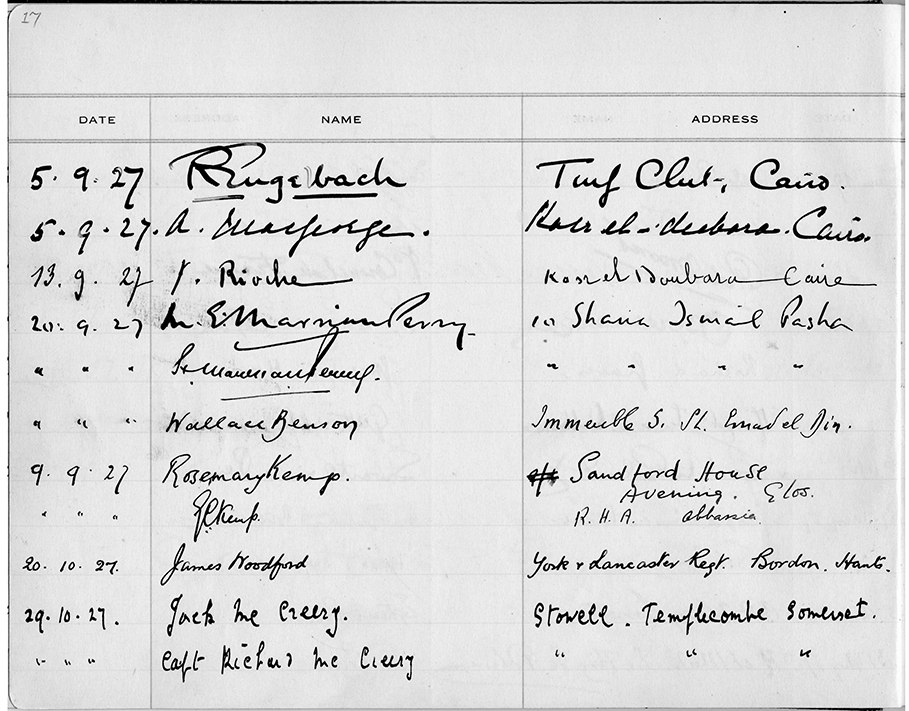 17
DATE NAME ADDRESS
5. 9. 27 R Engelbach Turf Club, Cairo.
5. 9. 27. A. Kasr el-Doubara. Cairo.
13. 9. 27 Rioche Kasr el Doubara Caire
20. 9. 27 M E. Marriman Perry 10 Sharia Ismail Pasha
" " " " " " "
" " " Wallace Benson Immeuble S. Sh. Emad el Din.
9. 9. 27 Rosemary Kemp. Sandford House
Avening. Glos.
" " " Kemp. R. H. A. Abbassia.
20. 10. 27. James Woodford York & Lancaster Regt. Bordon. Hants.
29. 10. 27. Jack Mc Creery. Stowell. Templecombe Somerset.
" " " Capt Richard Mc Creery " " "